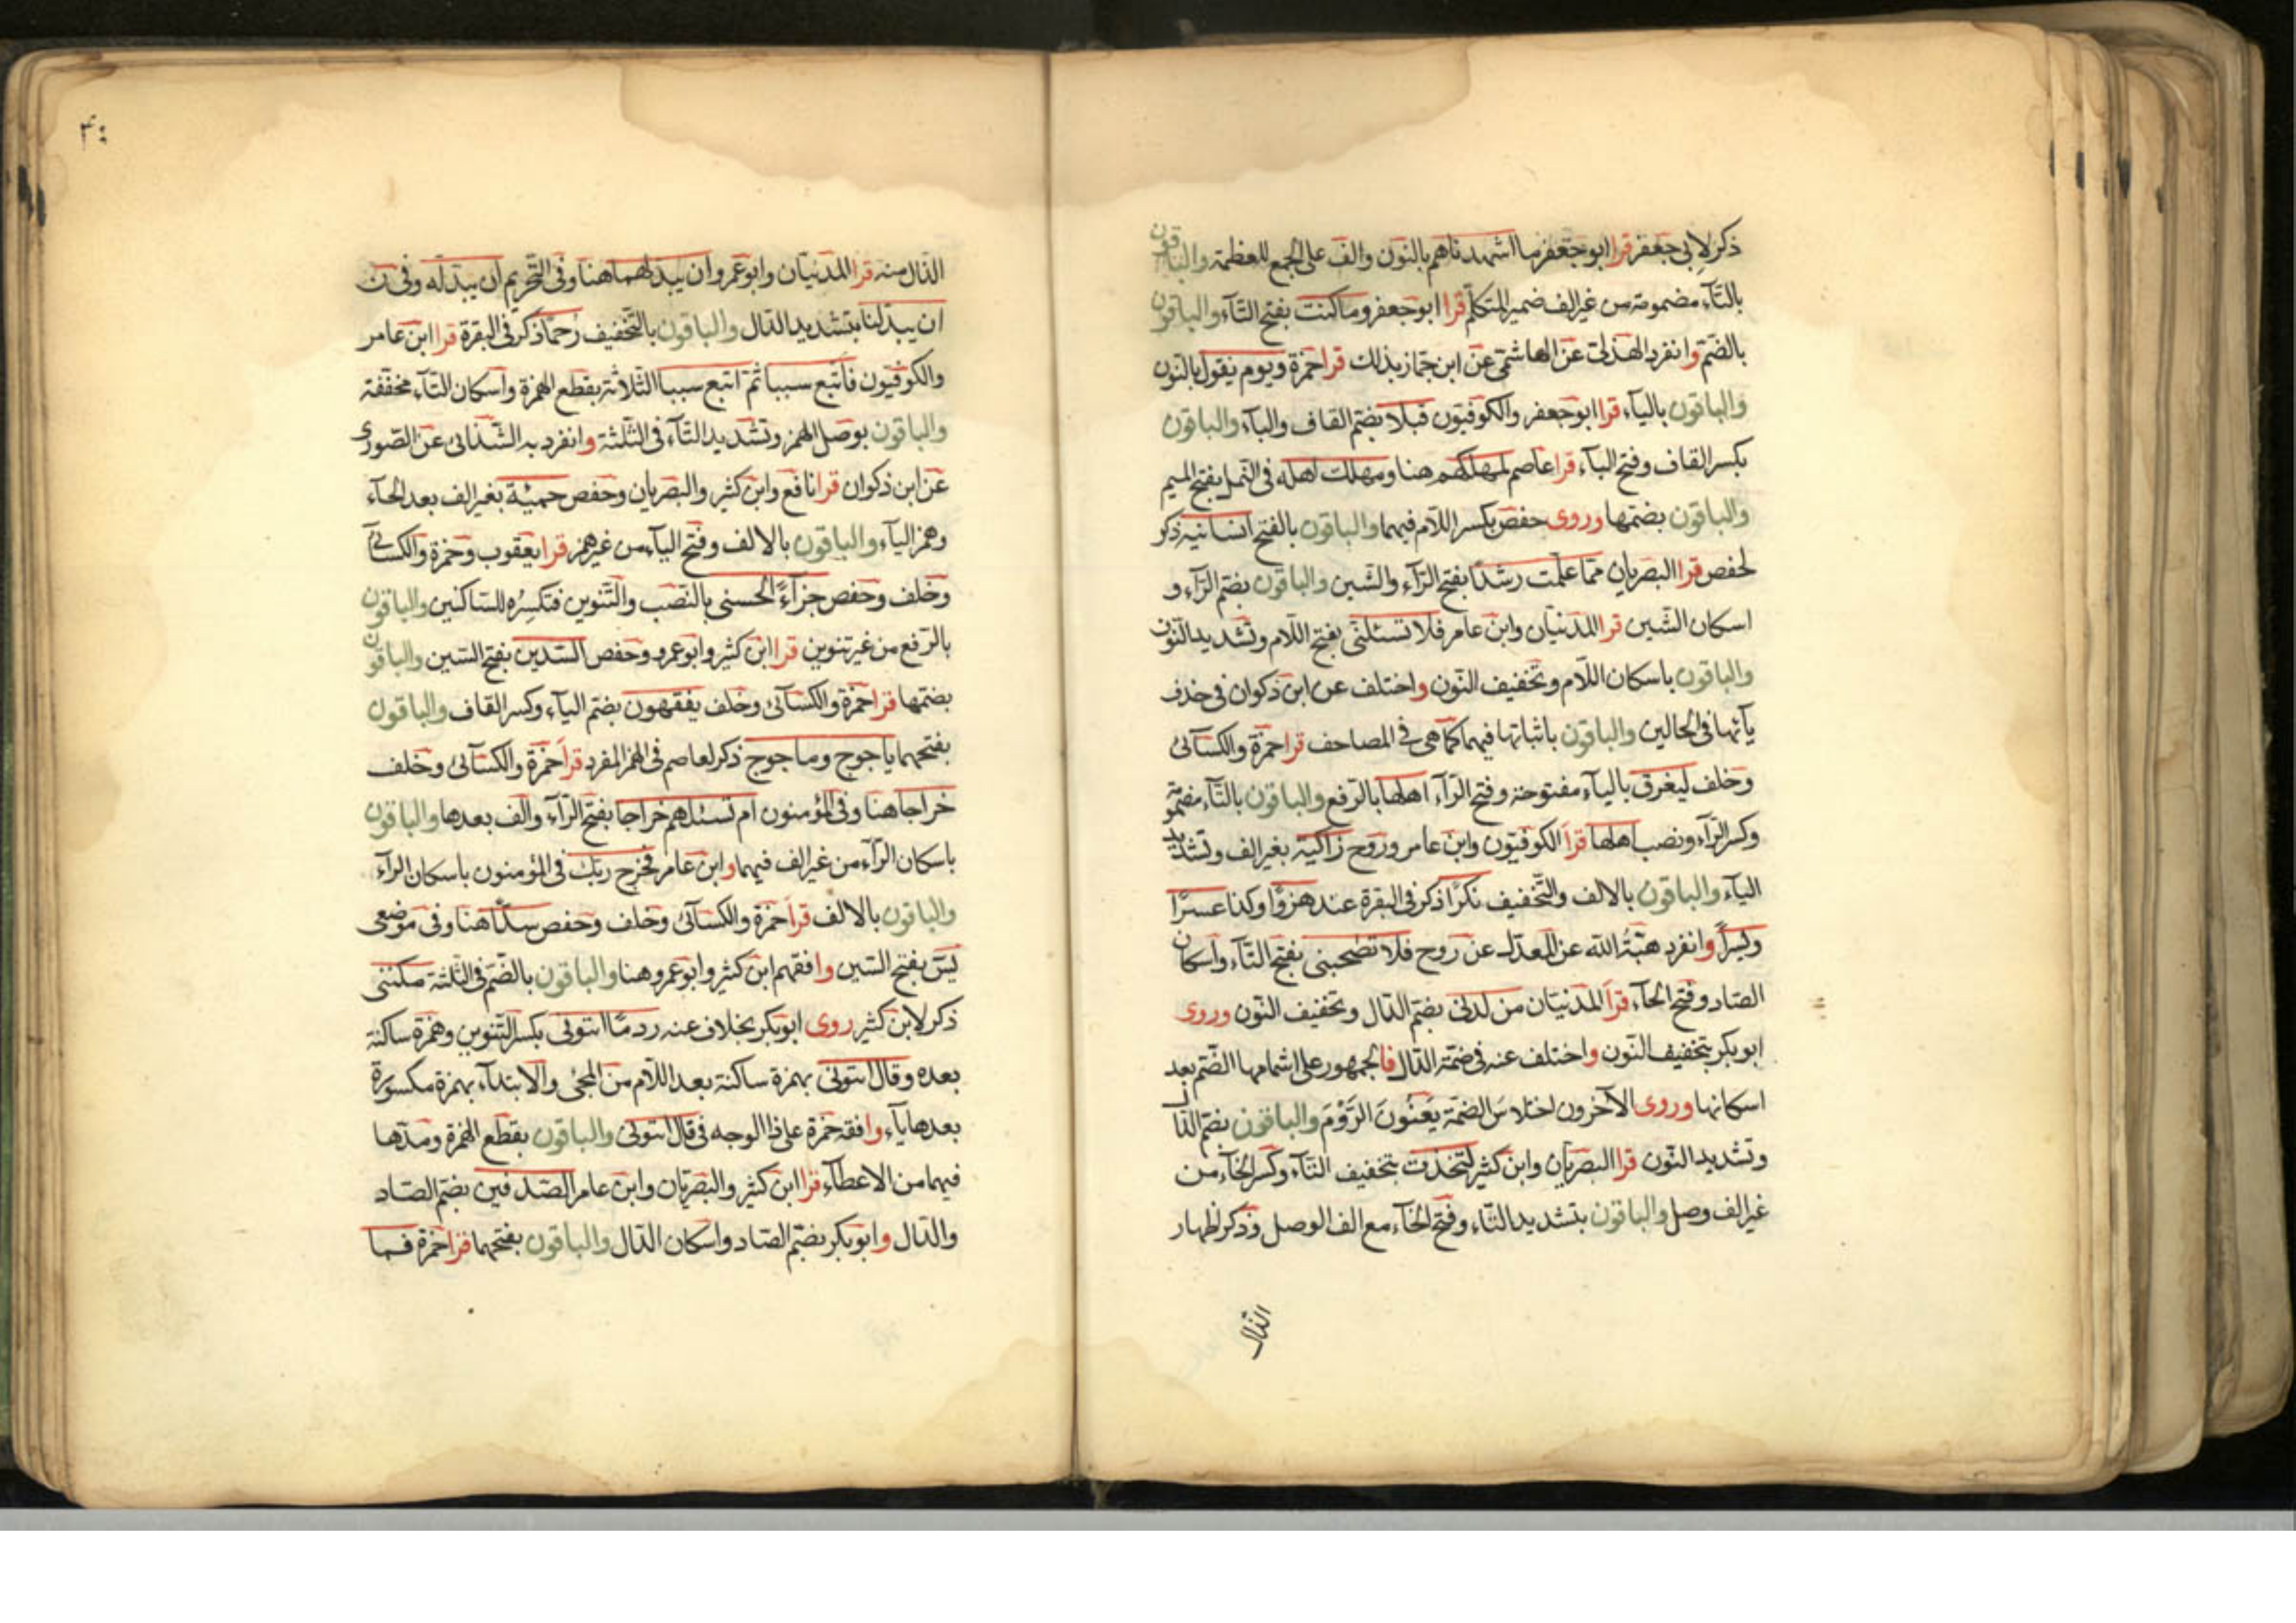 ذكر لابي جعفر قرا ابو جعفر ما اشهدناهم بالنون والف على الجمع للعظمة والباقون
بالتآء مضمومة من غير الف ضمير المتكلم قرا ابو جعفر وما كنت بفتح التآء والباقون
بالضم وانفرد الهذلى عن الهاشمى عن ابن جماز بذلك قرا حمزة ويوم يقول بالنون
والباقون باليآء قرا ابو جعفر والكوفيون قبلا بضم القاف والبآء والباقون
بكسر القاف وفتح البآء قرا عاصم لمهلكهم هنا ومهلك اهله فى النمل بفتح الميم
والباقون بضمها وروى حفص بكسر اللام فيهما والباقون بالفتح انسانيه ذكر
لحفص قرا البصريان مما علمت رشدا بفتح الرآء والشين والباقون بضم الرآء و
اسكان الشين قرا المدنيان وابن عامر فلا تسئلنى بفتح اللام وتشديد النون
والباقون باسكان اللام وتخفيف النون واختلف عن ابن ذكوان فى حذف
يآئها فى الحالين والباقون باثباتها فيهما كما هى فى المصاحف قرا حمزة والكسآئى
وخلف ليغرق باليآء مفتوحة وفتح الرآء اهلها بالرفع والباقون بالتآء مضمومة
وكسر الرآء ونصب اهلها قرا الكوفيون وابن عامر وروح زاكية بغير الف وتشديد
اليآء والباقون بالالف والتخفيف نكرا ذكر فى البقرة عند هزؤا وكذا عسرا
ويسرا وانفرد هبة الله عن المعدل عن روح فلا تصحبنى بفتح التآء واسكان
الصاد وفتح الحآء قرا المدنيان من لدنى بضم الدال وتخفيف النون وروى
ابو بكر بتخفيف النون واختلف عنه فى ضمة الدال فالجمهور على اشمامها الضم بعد
اسكانها وروى الآخرون اختلاس الضمة يعنون الروم والباقون بضم الدال
وتشديد النون قرا البصريان وابن كثير لتخذت بتخفيف التآء وكسر الخآء من
غير الف وصل والباقون بتشديد التآء وفتح الخآء مع الف الوصل وذكر اظهار
الذال
الذال منه قرا المدنيان وابو عمرو ان يبدلهما هنا وفى التحريم ان يبدله وفى ن
ان يبدلنا بتشديد الدال والباقون بالتخفيف رحما ذكر فى البقرة قرا ابن عامر
والكوفيون فاتبع سببا ثم اتبع سببا الثلاثة بقطع الهمزة واسكان التآء مخففة
والباقون بوصل الهمز وتشديد التآء فى الثلثة وانفرد به الشذائى عن الصورى
عن ابن ذكوان قرا نافع وابن كثير والبصريان وحفص حمئة بغير الف بعد الحآء
وهمز اليآء والباقون بالالف وفتح اليآء من غير همز قرا يعقوب وحمزة والكسآئى
وخلف وحفص جزآءً الحسنى بالنصب والتنوين فتكسره للساكنين والباقون
بالرفع من غير تنوين قرا ابن كثير وابو عمرو وحفص السدين بفتح السين والباقون
بضمها قرا حمزة والكسآئى وخلف يفقهون بضم اليآء وكسر القاف والباقون
بفتحهما ياجوج وماجوج ذكر لعاصم فى الهمز المفرد قرا حمزة والكسآئى وخلف
خراجا هنا وفى المؤمنون ام تسئلهم خراجا بفتح الرآء والف بعدها والباقون
باسكان الرآء من غير الف فيهما وابن عامر فخرج ربك فى المؤمنون باسكان الرآء
والباقون بالالف قرا حمزة والكسآئى وخلف وحفص سدا هنا وفى موضعى
يس بفتح السين وافقهم ابن كثير وابو عمرو هنا والباقون بالضم فى الثلثة مكننى
ذكر لابن كثير روى ابو بكر بخلاف عنه ردما ائتونى بكسر التنوين وهمزة ساكنة
بعده وقال ائتونى بهمزة ساكنة بعد اللام من المجئ والابتدآء بهمزة مكسورة
بعدها يآء وافقه حمزة على ذا الوجه فى قال ائتونى والباقون بقطع الهمزة ومدها
فيهما من الاعطآء قرا ابن كثير والبصريان وابن عامر الصدفين بضم الصاد
والدال وابو بكر بضم الصاد واسكان الدال والباقون بفتحهما قرا حمزة فما